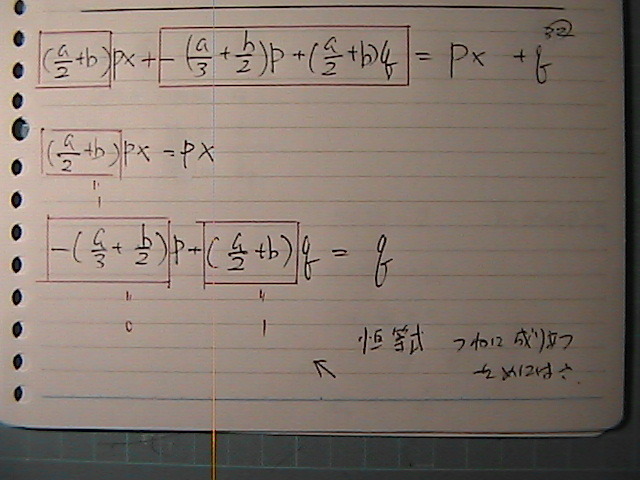 (a/2+b)px+-(a/3+b/2)p+(a/2+b)q = px +q
(a/2+b)px=px
"
1
-(a/3+b/2)p+(a/2+b)q = q
" "
0 1
恒等式 つねに成り立つ
ためには